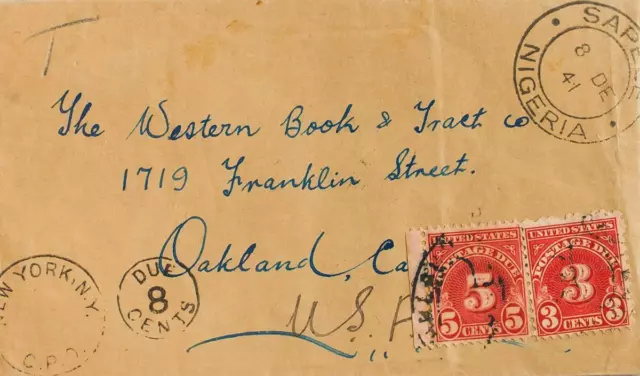 T
SAPELE
8 DE
41
NIGERIA
The Western Book & Tract Co
1719 Franklin Street.
Oakland, Ca
U.S.A
NEW YORK, N.Y.
G.P.O.
DUE
8
CENTS
UNITED STATES
POSTAGE DUE
5
5 CENTS 5
UNITED STATES
POSTAGE DUE
3
3 CENTS 3